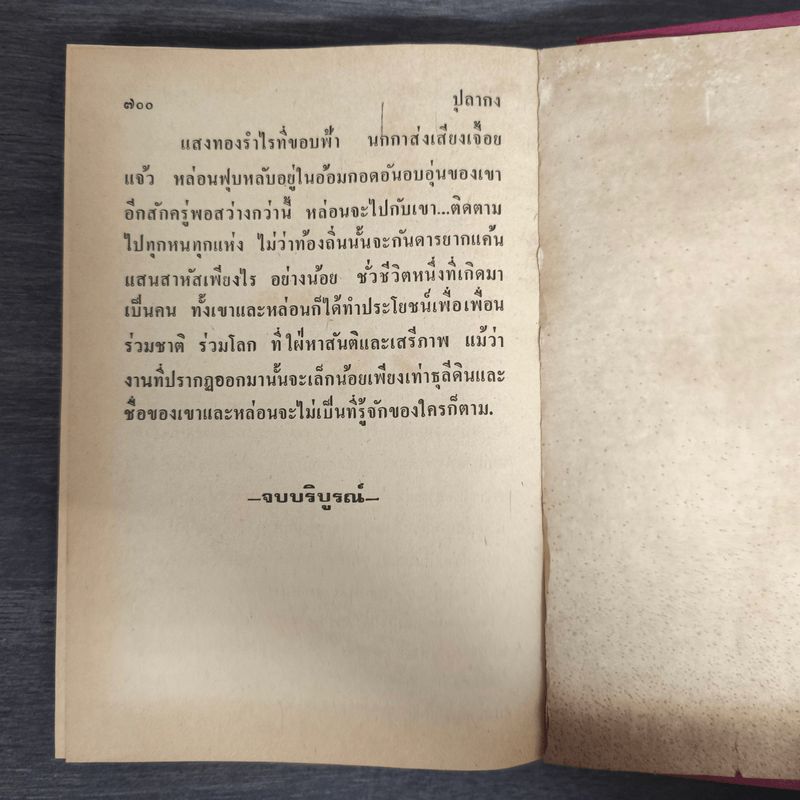 ๗๐๐ ปุลากง
แสงทองรำไรที่ขอบฟ้า นกกาส่งเสียงเจื้อย
แจ้ว หล่อนฟุบหลับอยู่ในอ้อมกอดอันอบอุ่นของเขา
อีกสักครู่พอสว่างกว่านี้ หล่อนจะไปกับเขา...ติดตาม
ไปทุกหนทุกแห่ง ไม่ว่าท้องถิ่นนั้นจะกันดารยากแค้น
แสนสาหัสเพียงไร อย่างน้อย ชั่วชีวิตหนึ่งที่เกิดมา
เป็นคน ทั้งเขาและหล่อนก็ได้ทำประโยชน์เพื่อเพื่อน
ร่วมชาติ ร่วมโลก ที่ใฝ่หาสันติและเสรีภาพ แม้ว่า
งานที่ปรากฏออกมานั้นจะเล็กน้อยเพียงเท่าธุลีดินและ
ชื่อของเขาและหล่อนจะไม่เป็นที่รู้จักของใครก็ตาม.
—จบบริบูรณ์—